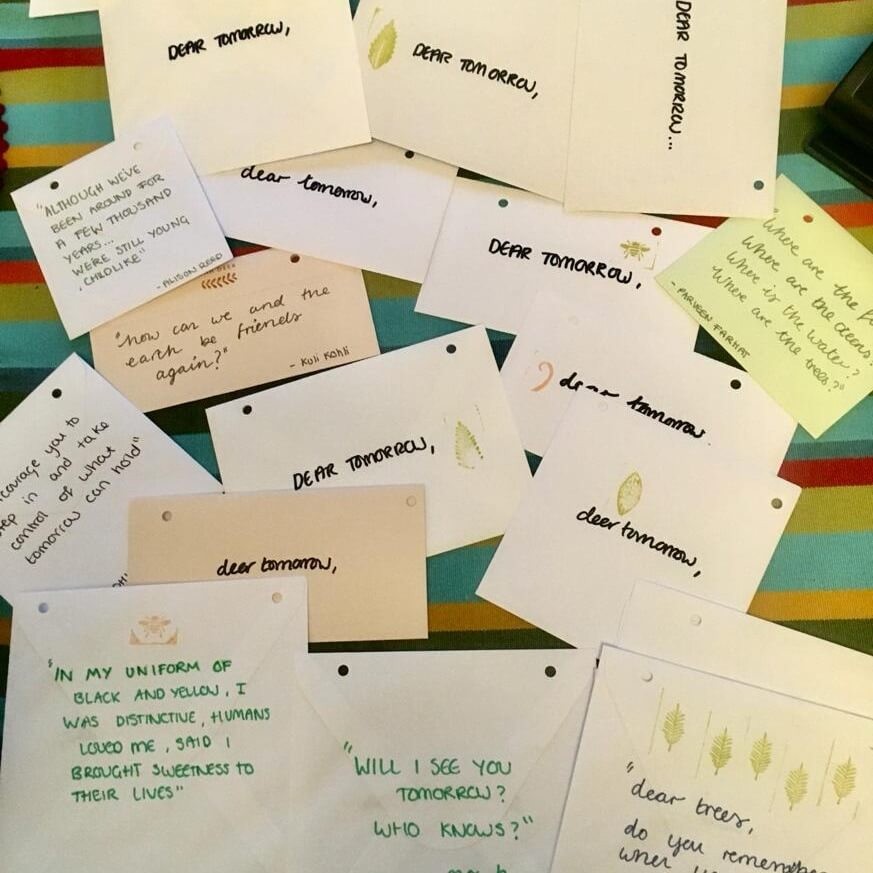 DEAR TOMORROW,
DEAR TOMORROW,
DEAR TOMORROW...
"ALTHOUGH WE'VE
BEEN AROUND FOR
A FEW THOUSAND
YEARS...
WE'RE STILL YOUNG
, CHILDLIKE"
- ALISON REED
dear tomorrow,
DEAR TOMORROW,
"Where are the
Where are the oceans?
Where is the water?
Where are the trees?"
- PARVEEN FARHAT
"how can we and the
earth be friends
again?"
- Kuli Kohli
dear tomorrow.
DEAR TOMORROW,
you to
step in and take
control of what
tomorrow can hold"
deer tomorrow,
deer tomorrow,
"IN MY UNIFORM OF
BLACK AND YELLOW, I
WAS DISTINCTIVE, HUMANS
LOVED ME, SAID I
BROUGHT SWEETNESS TO
THEIR LIVES"
"WILL I SEE YOU
TOMORROW?
WHO KNOWS?"
"dear trees,
do you remember